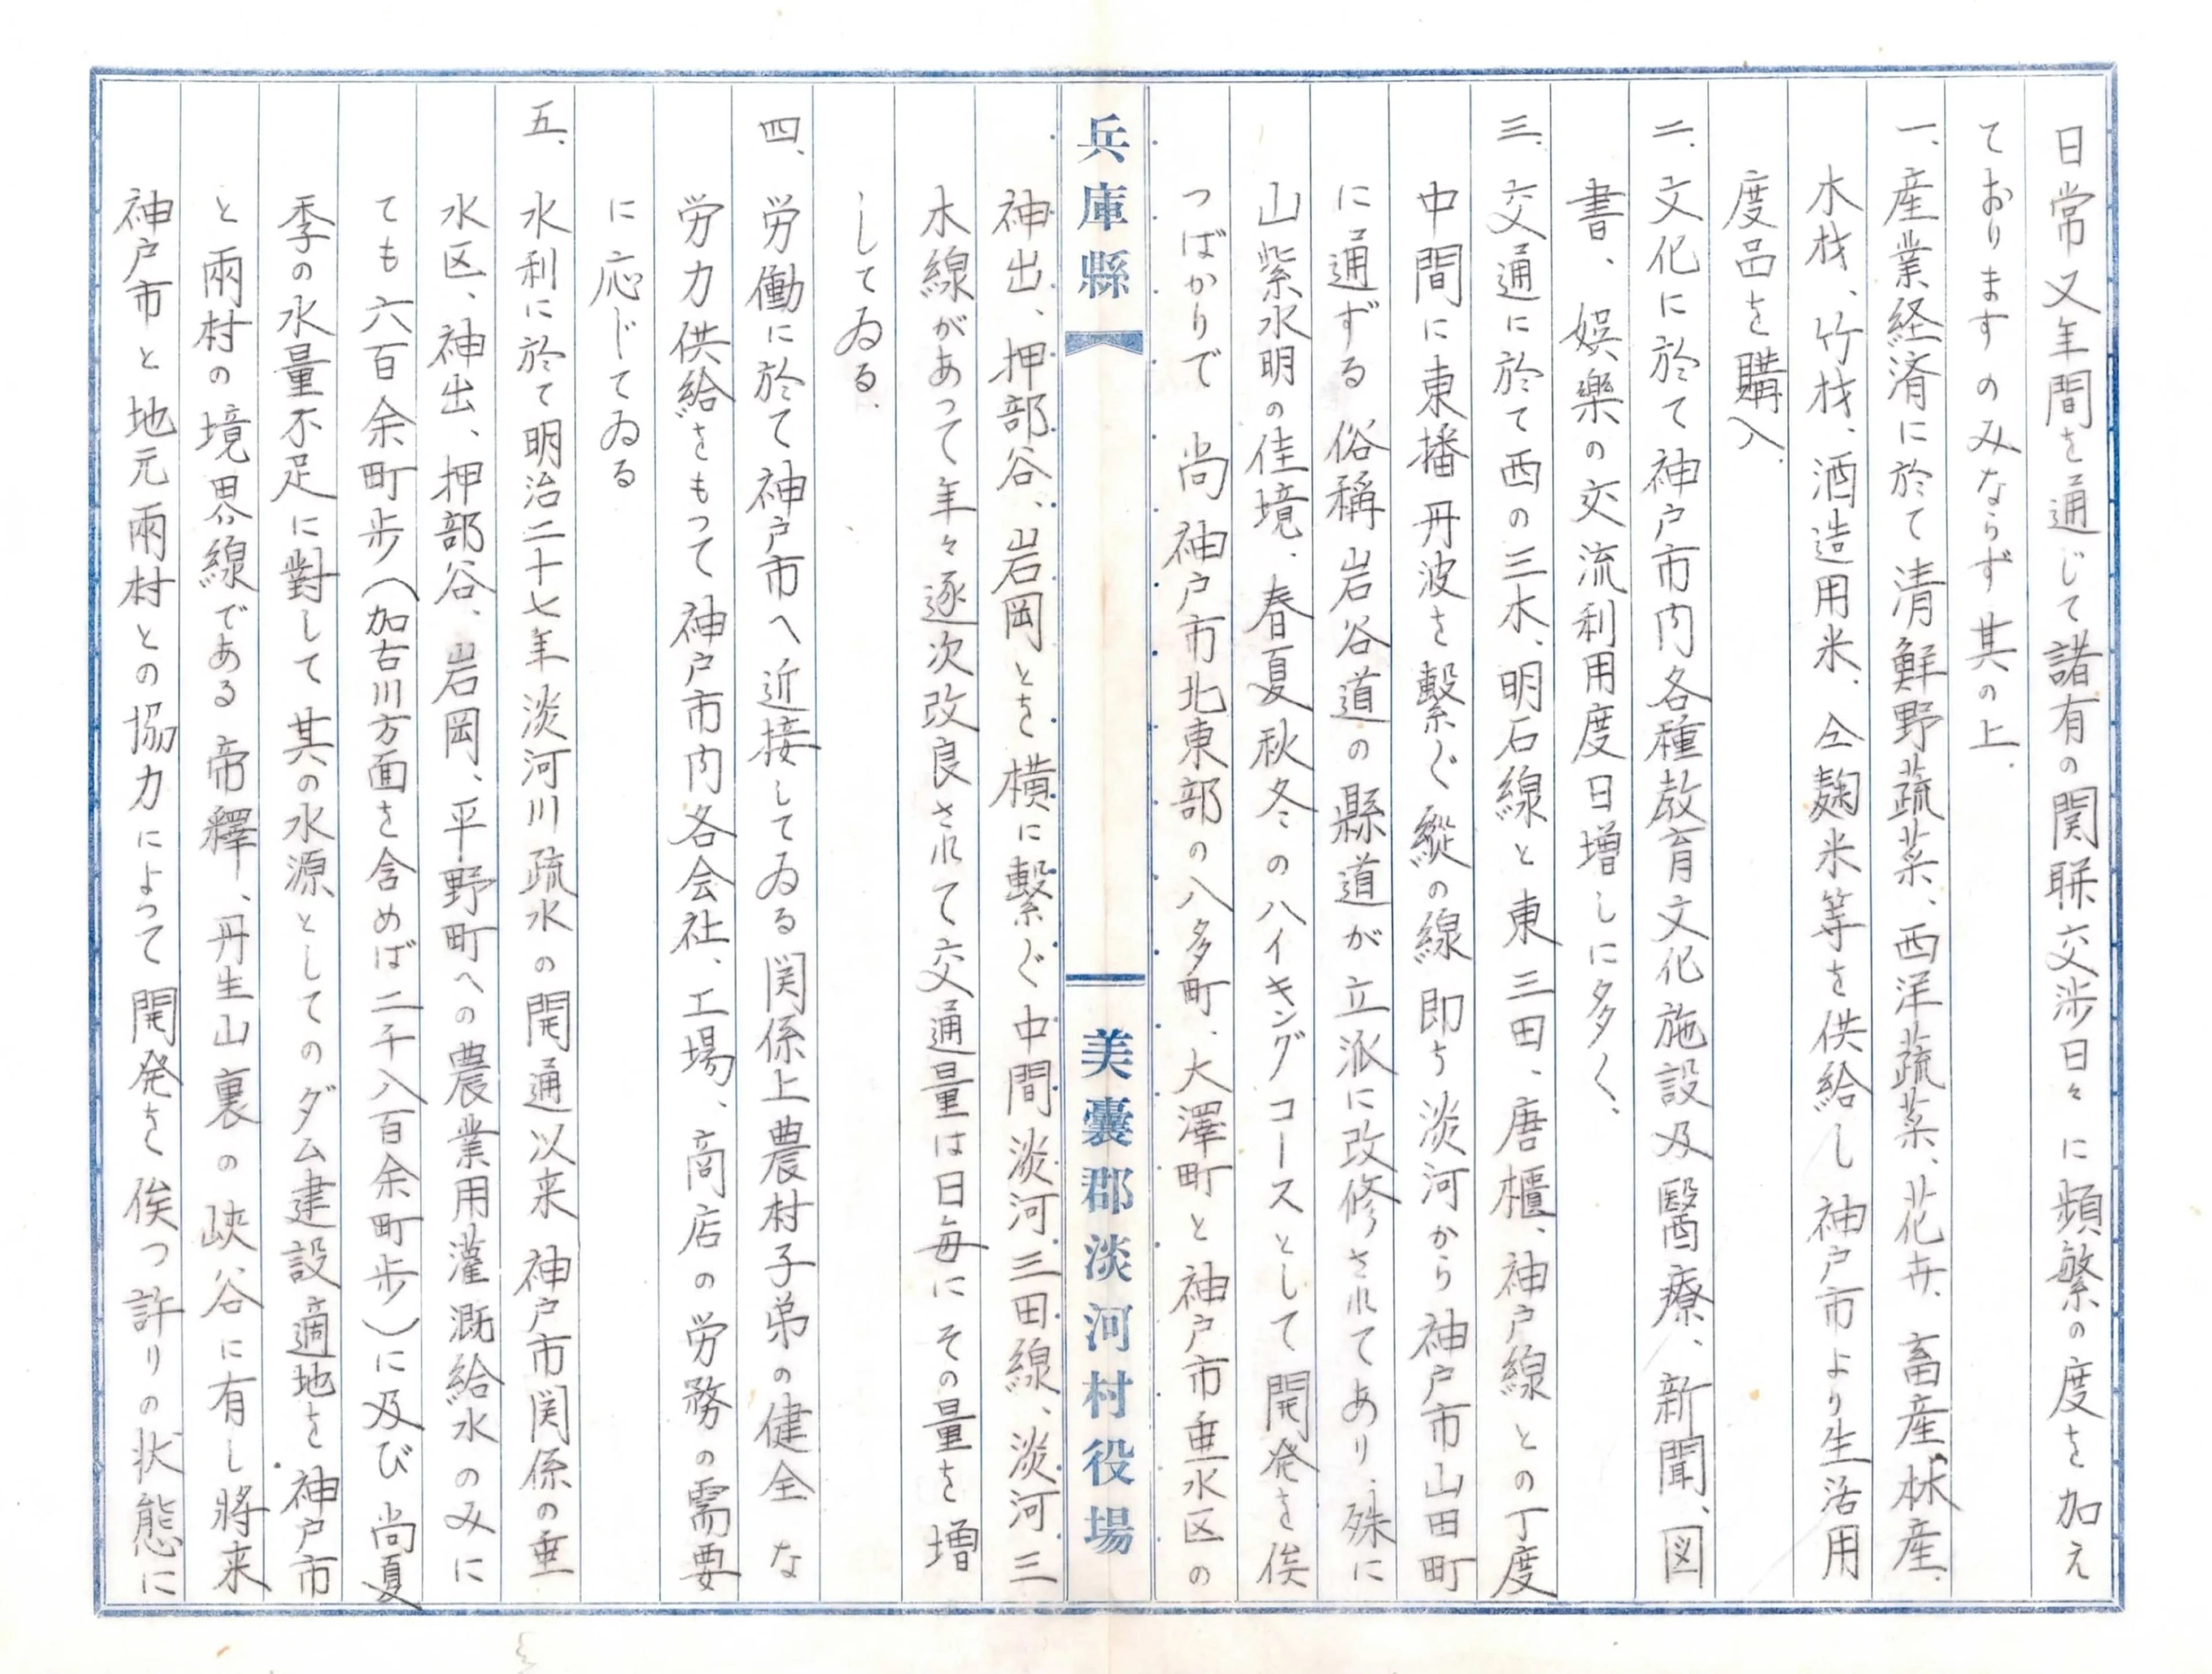 日常又年間を通じて諸有の関聯交渉日々に頻繁の度を加え
ておりますのみならず其の上、
一、産業経済に於て清鮮野蔬菜、西洋蔬菜、花卉、畜産、林産、
木材、竹材、酒造用米、仝麹米等を供給し神戸市より生活用
度品を購入、
二、文化に於て神戸市内各種教育文化施設及醫療、新聞、図
書、娯樂の交流利用度日増しに多く、
三、交通に於て西の三木、明石線と東三田、唐櫃、神戸線との丁度
中間に東播丹波を繋ぐ縦の線即ち淡河から神戸市山田町
に通ずる俗稱岩谷道の縣道が立派に改修されてあり、殊に
山紫水明の佳境、春夏秋冬のハイキングコースとして開発を俟
つばかりで尚神戸市北東部の八多町、大澤町と神戸市垂水区の
兵庫縣 美嚢郡淡河村役場
神出、押部谷、岩岡とを横に繋ぐ中間淡河三田線、淡河三
木線があって年々逐次改良されて交通量は日毎にその量を増
してゐる、
四、労働に於て神戸市へ近接してゐる関係上農村子弟の健全な
労力供給をもって神戸市内各会社、工場、商店の労務の需要
に応じてゐる
五、水利に於て明治二十七年淡河川疏水の開通以来神戸市関係の垂
水区、神出、押部谷、岩岡、平野町への農業用灌漑給水のみに
ても六百余町歩(加古川方面を含めば二千八百余町歩)に及び尚夏
季の水量不足に對して其の水源としてのダム建設適地を神戸市
と兩村の境界線である帝釋、丹生山裏の峽谷に有し將来
神戸市と地元兩村との協力によって開発を俟つ許りの状態に